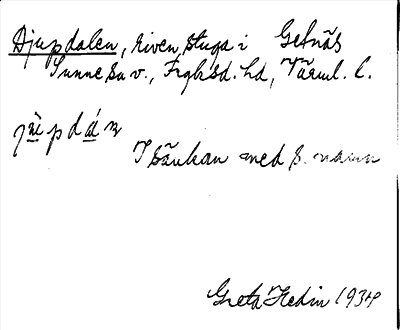 Djupdalen, riven stuga i Getnäs
Sunne sn v., Fryksd. hd, Värml. l.
jùpdán
I sänkan med s. namn
Greta Hedin 1934